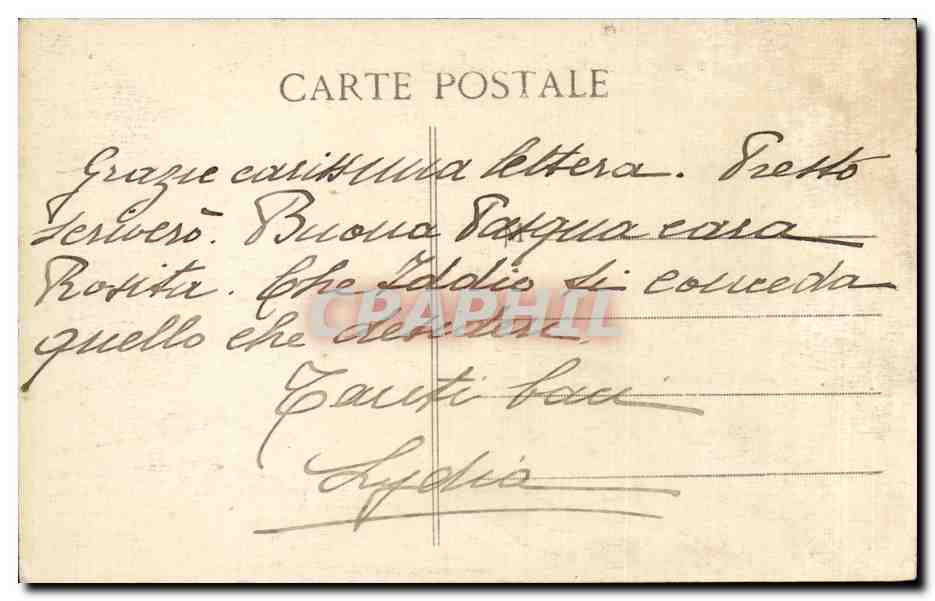 CARTE POSTALE
Grazie carissima lettera. Presto
scriverò. Buona Pasqua cara
Rosita. Che Iddio ti conceda
quello che desideri.
CPARHIL
Tanti baci
Lydia